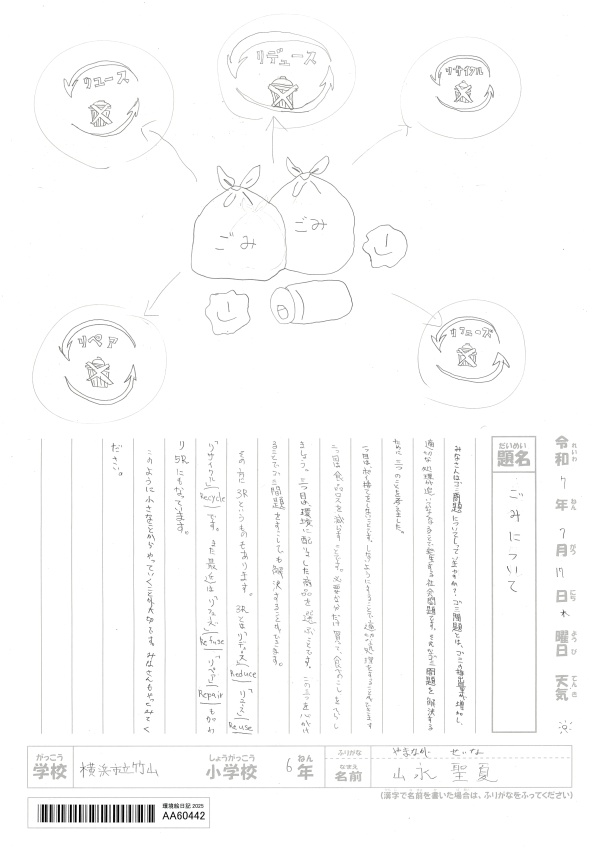 リデュース
リユース
リサイクル
ごみ
ごみ
リペア
リフューズ
令和 れいわ 7 年 ねん 7 月 がつ 17 日 にち 木 曜日 ようび 天気 てんき
だいめい 題名 ごみについて
みなさんはごみ問題についてしっていますか?ごみ問題とは、ごみの排出量が増加し、
適切な処理が追いつかなくなることで発生する社会問題です。そんなごみ問題を解決する
ために三つのことを考えました。
一つ目はポイ捨てをしないことです。しないようにすることで適切な処理をすることができます
二つ目は食品ロスを減らすことです。必要な分だけ買って、食べのこしをへらし
ましょう。三つ目は環境に配りょした商品を選ぶことです。この三つを心がけ
ることでごみ問題をすこしでも解決することができます。
その方に3Rというものもあります。3Rとは「リデュース」Reduce「リユース」Reuse
「リサイクル」Recycleです。また最近は「リフューズ」Refuse「リペア」Repairもがわ
り5Rにもなっています。
このように小さなことからやっていくことが大切です。みなさんもやってみてく
ださい。
がっこう 学校 横浜市立竹山 しょうがっこう 小学校 6 ねん 年 ふりがな やまなが せいな
なまえ 名前 山永 聖夏
(漢字で名前を書いた場合は、ふりがなをふってください)
環境絵日記 2025
AA60442